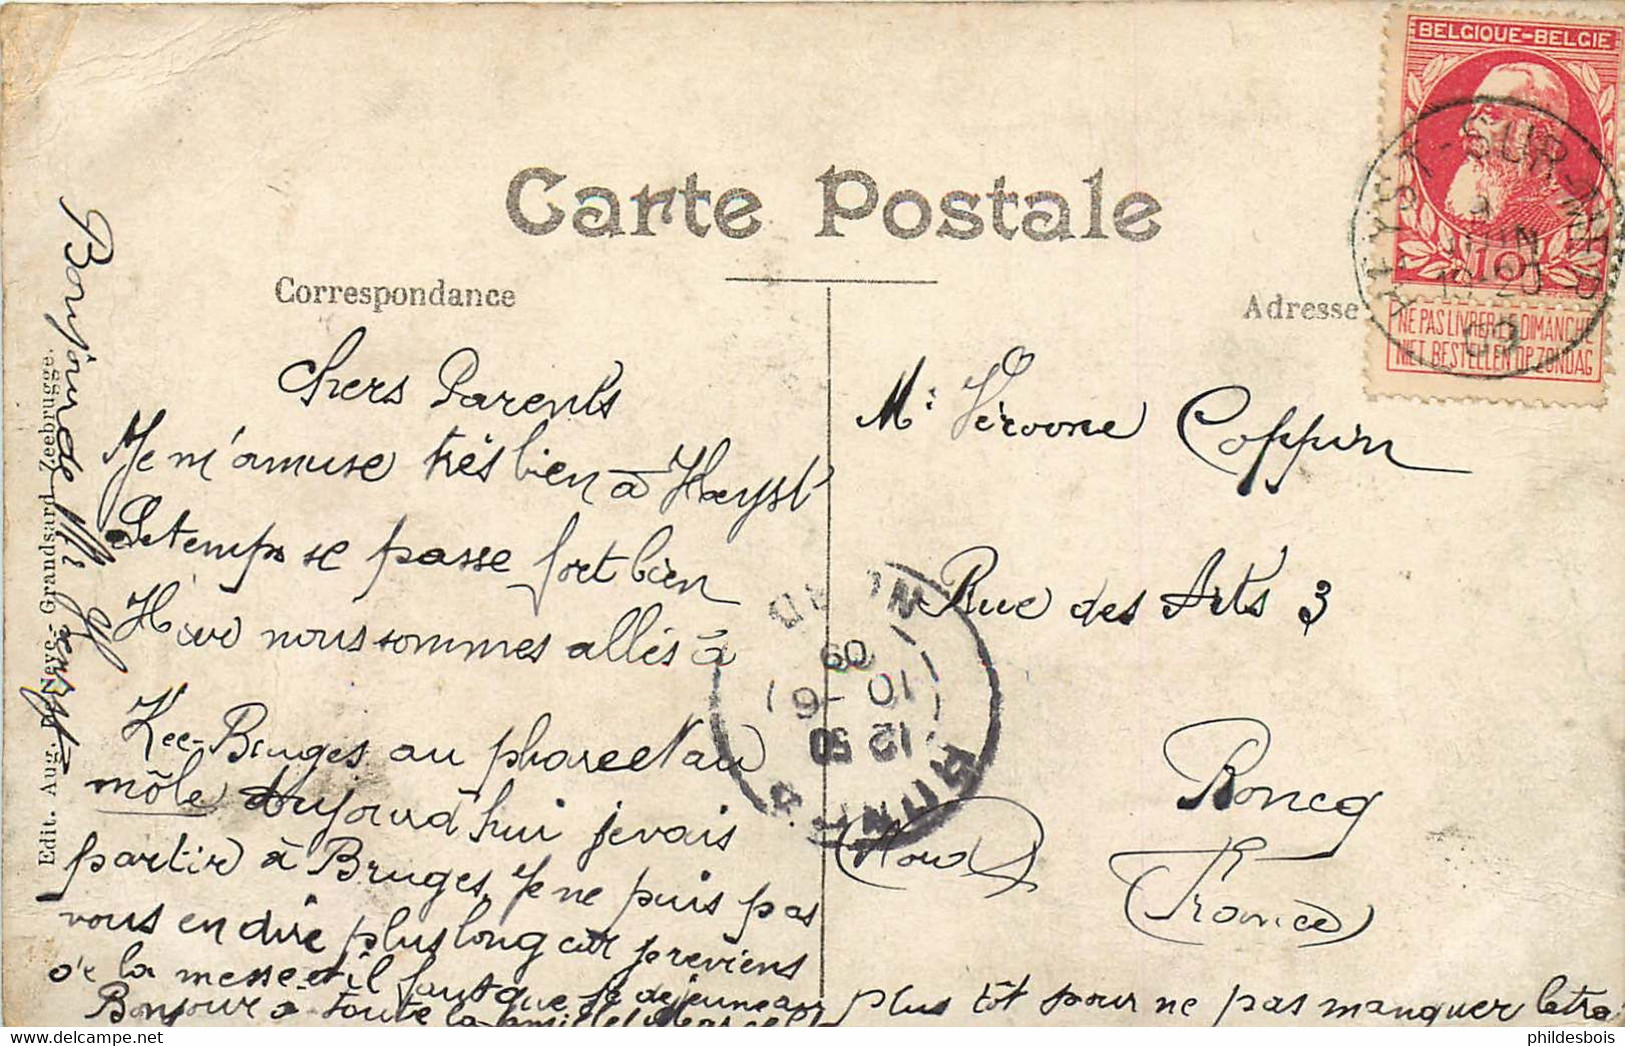 BELGIQUE-BELGIE
10
NE PAS LIVRER LE DIMANCHE
NIET BESTELLEN OP ZONDAG
HEYST-SUR-MER
JUIN
09
Carte Postale
Correspondance
Adresse
Chers Parents
Je m'amuse très bien à Heyst
Le temps se passe fort bien
Hier nous sommes allés à
Zee-Bruges au phare et au
môle aujourd'hui je vais
partir à Bruges, Je ne puis pas
vous en dire plus long car je reviens
de la messe et il faut que je déjeune au plus tôt pour ne pas manquer le tra
Bonjour à toute la famille
Bonjour de
Mr Veroone Coppin
Rue des Arts 3
Roncq
(Nord)
(France)
NORD
09
10 -6
12 50
Edit. Aug. D'Neve - Grandsard Zeebrugge.
phildesbois